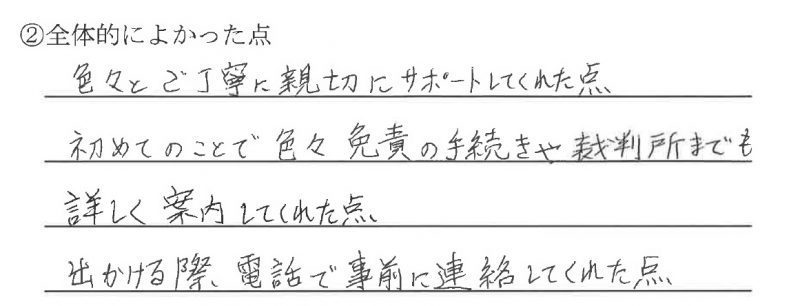 ②全体的によかった点
色々とご丁寧に親切にサポートしてくれた点、
初めてのことで色々免責の手続きや裁判所までも
詳しく案内してくれた点、
出かける際、電話で事前に連絡してくれた点、